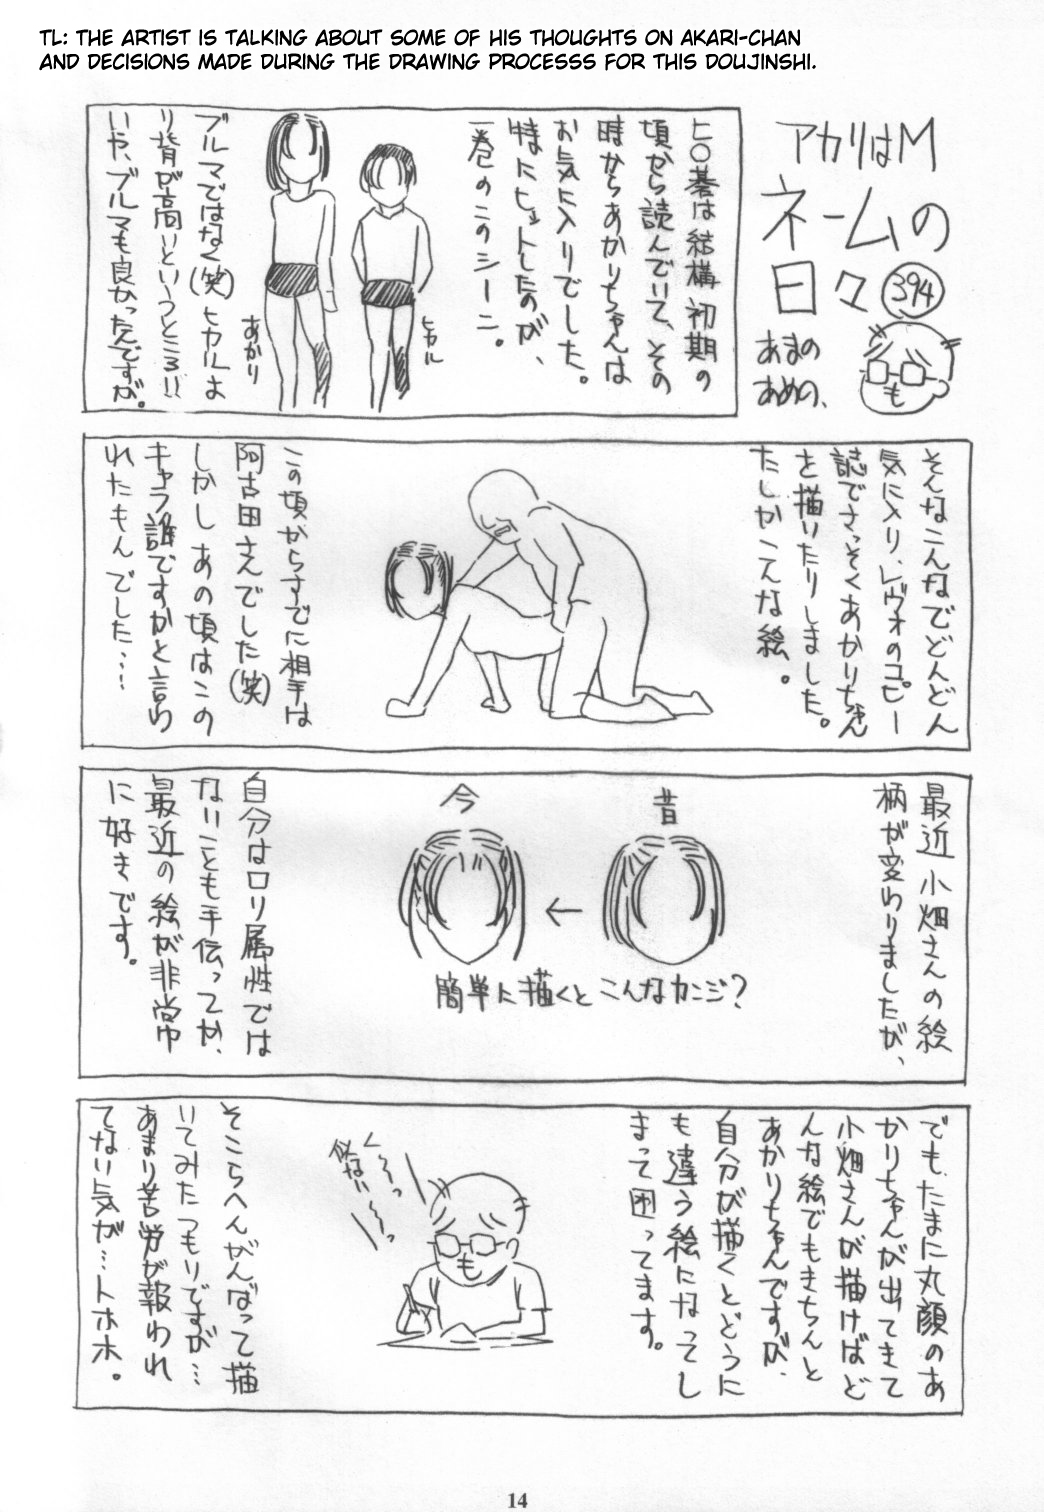 TL: THE ARTIST IS TALKING ABOUT SOME OF HIS THOUGHTS ON AKARI-CHAN
AND DECISIONS MADE DURING THE DRAWING PROCESSS FOR THIS DOUJINSHI.
アカリはM
ネームの
日々
394
あまの
あめの、
ヒ〇碁は結構初期の
頃から読んでいて、その
時からあかりちゃんは
お気に入りでした。
特にヒットしたのが、
一巻のこのシーン。
ヒカル
あかり
ブルマではなく(笑)ヒカルよ
り背が高いというところ!!
いや、ブルマも良かったんですが。
そんなこんなでどんどん
気に入り、レヴォのコピー
誌でさっそくあかりちゃん
を描いたりしました。
たしかこんな絵。
この頃からすでに相手は
阿古田さんでした(笑)
しかしあの頃はこの
キャラ誰ですかと言わ
れたもんでした……
最近小畑さんの絵
柄が変わりましたが、
昔
←
今
簡単に描くとこんなカンジ?
自分はロリ属性では
ないことも手伝ってか、
最近の絵が非常
に好きです。
でも、たまに丸顔のあ
かりちゃんが出てきて
小畑さんが描けばど
んな絵でもきちんと
あかりちゃんですが、
自分が描くとどうに
も違う絵になってし
まって困ってます。
く〜〜っ
似ない〜〜っ
そこらへんがんばって描
いてみたつもりですが…
あまり苦労が報われ
てない気が…トホホ。
14